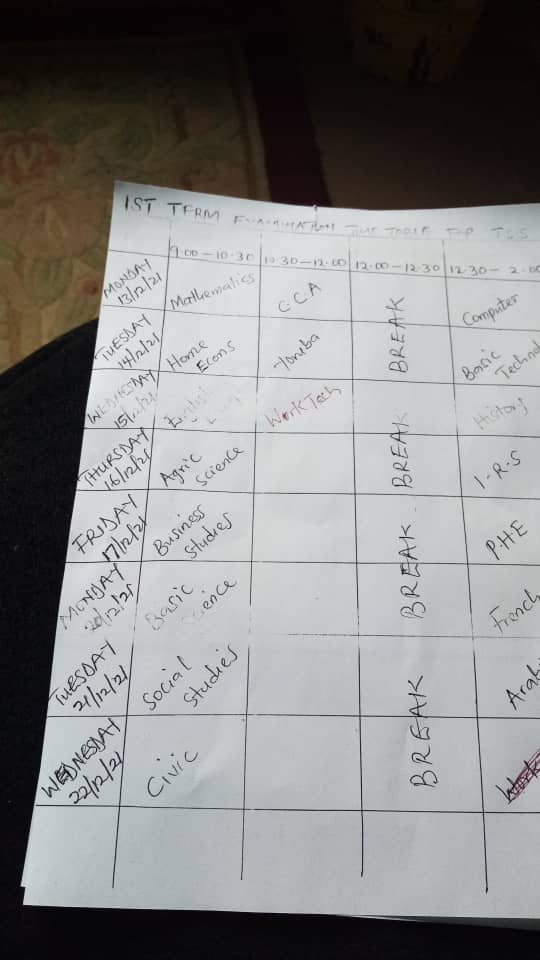 1ST TERM EXAMINATION TIME TABLE FOR
9.00-10.30 10.30-12.00 12.00-12.30 12.30-2.00
MONDAY 13/12/21 Mathematics C.C.A Computer
TUESDAY 14/12/21 Home Econs Yoruba BREAK Basic
WEDNESDAY 15/12/21 English WorkTech History
THURSDAY 16/12/21 Agric Science BREAK I.R.S
FRIDAY 17/12/21 Business Studies P.H.E
MONDAY 20/12/21 Basic BREAK French
TUESDAY 21/12/21 Social Studies
WEDNESDAY 22/12/21 Civic BREAK